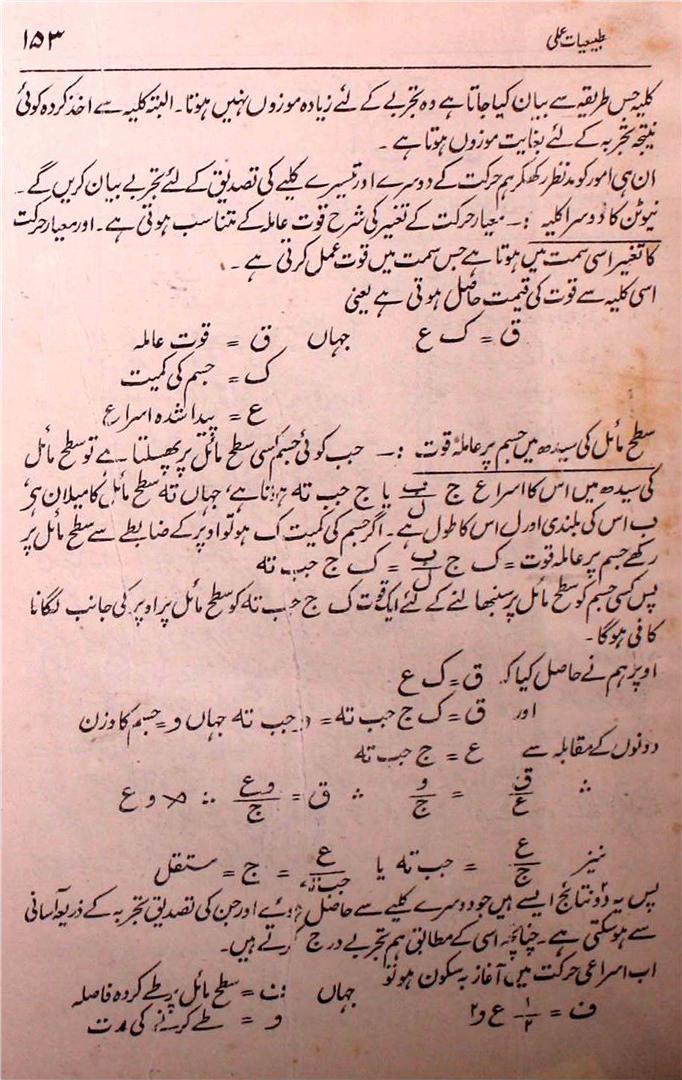 طبیعیات عملی ۱۵۳
کلیہ جس طریقہ سے بیان کیا جاتا ہے وہ تجربے کے لئے زیادہ موزوں نہیں ہوتا۔ البتہ کلیہ سے اخذ کردہ کوئی
نتیجہ تجربہ کے لئے بغایت موزوں ہوتا ہے ۔
ان ہی امور کو مدنظر رکھ کر ہم حرکت کے دوسرے اور تیسرے کلیے کی تصدیق کے لئے تجربے بیان کریں گے ۔
نیوٹن کا دوسرا کلیہ :۔ معیار حرکت کے تغیر کی شرح قوت عاملہ کے متناسب ہوتی ہے۔ اور معیار حرکت
کا تغیر اسی سمت میں ہوتا ہے جس سمت میں قوت عمل کرتی ہے ۔
اسی کلیہ سے قوت کی قیمت حاصل ہوتی ہے یعنی
ق = ک ع جہاں ق = قوت عاملہ
ک = جسم کی کمیت
ع = پیدا شدہ اسراع
سطح مائل کی سیدھ میں جسم پر عاملہ قوت :۔ جب کوئی جسم کسی سطح مائل پر پھسلتا ہے تو سطح مائل
کی سیدھ میں اس کا اسراع ج ب/ل یا ج جب تہ ہوتا ہے، جہاں تہ سطح مائل کا میلان ہے،
ب اس کی بلندی اور ل اس کا طول ہے۔ اگر جسم کی کمیت ک ہو تو اوپر کے ضابطے سے سطح مائل پر
رکھے جسم پر عاملہ قوت = ک ج ب/ل = ک ج جب تہ
پس کسی جسم کو سطح مائل پر سنبھالنے کے لئے ایک قوت ک ج جب تہ کو سطح مائل پر اوپر کی جانب لگانا
کافی ہوگا ۔
اوپر ہم نے حاصل کیا کہ ق = ک ع
اور ق = ک ج جب تہ = و جب تہ جہاں و = جسم کا وزن
دونوں کے مقابلہ سے ع = ج جب تہ
∴ ق/ع = و/ج ∴ ق = و ع/ج ∴ ∝ و ع
نیز ع/ج = جب تہ یا ع/جب تہ = ج = مستقل
پس یہ دو نتائج ایسے ہیں جو دوسرے کلیے سے حاصل ہوئے اور جن کی تصدیق تجربہ کے ذریعہ آسانی
سے ہوسکتی ہے ۔ چنانچہ اسی کے مطابق ہم تجربے درج کرتے ہیں۔
اب اسراعی حرکت میں آغاز بہ سکون ہو تو
ف = ۱/۲ ع و۲ جہاں ف = سطح مائل پر طے کردہ فاصلہ
و = طے کرنے کی مدت